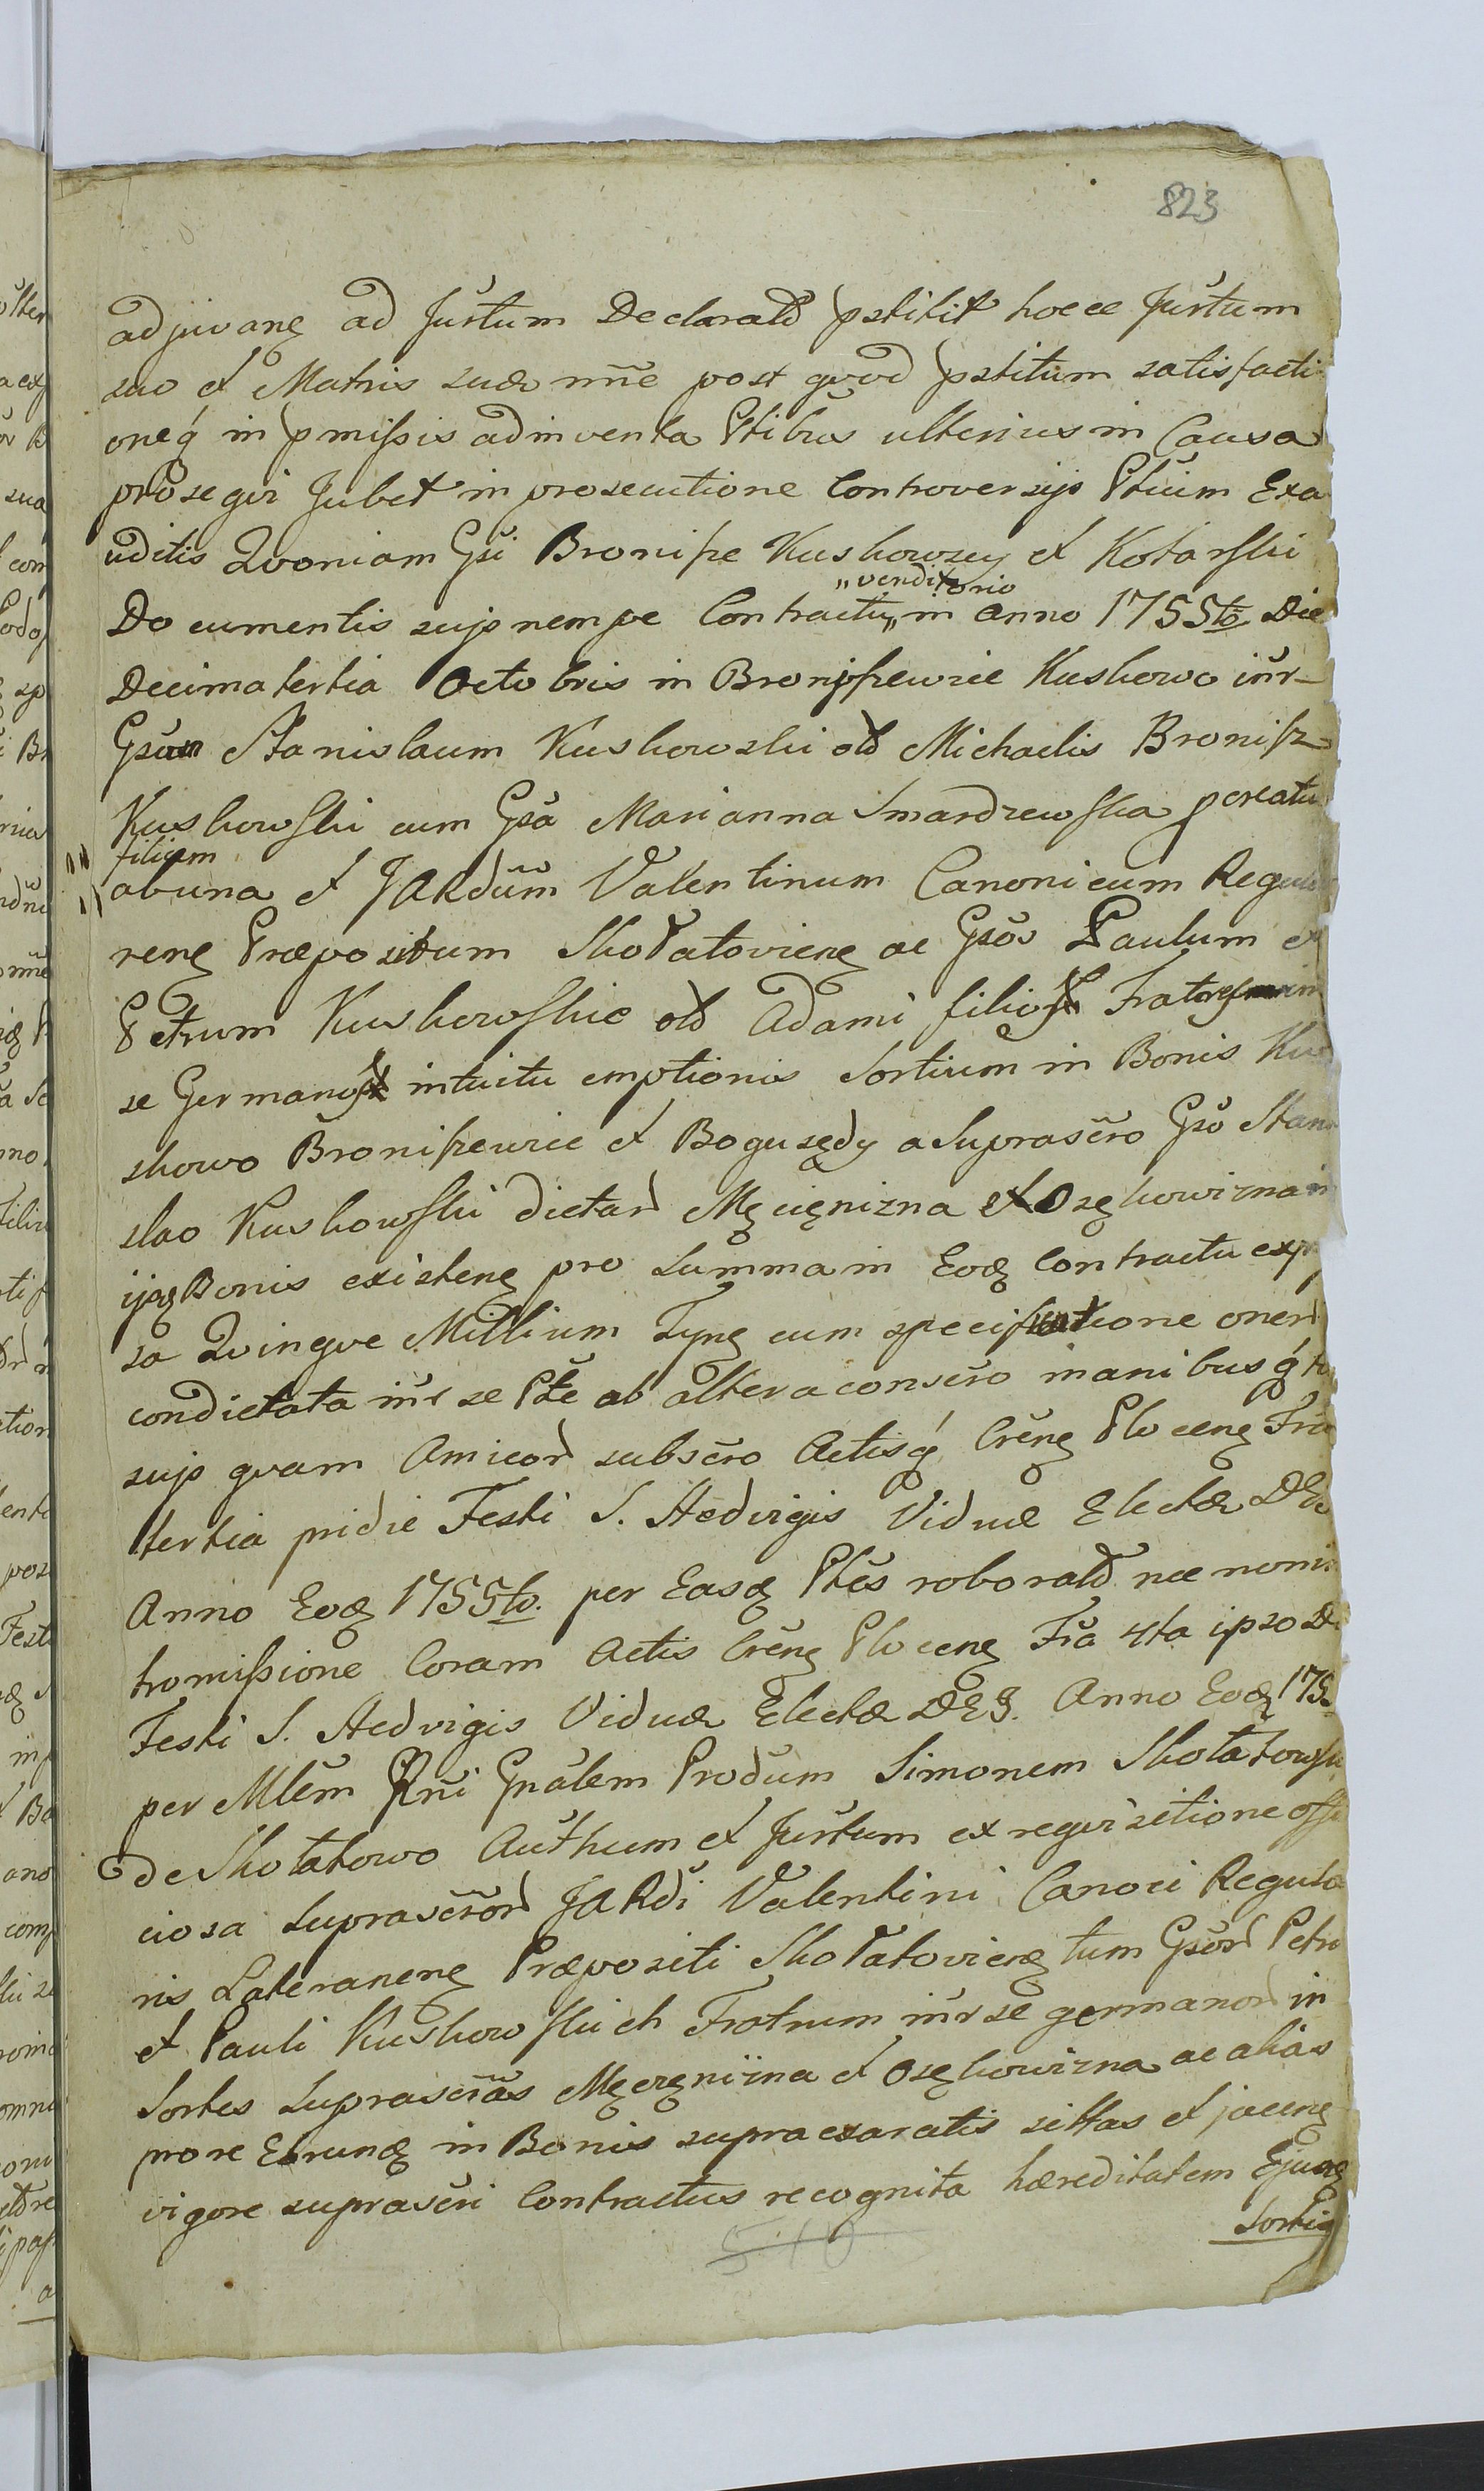 823
adjuvang ad Jurtum Declarald pstitit hocce Jurtum
suo et Matris suæ nne post qvod pstitum satisfacti
oneq́ in pmissis adinventa Ptibus ulterius in Causa
proseqvi Jubet in prosecutione Controversijs Ptium Exa
uditis Qvoniam Gsi Bronisze Kuskowscy et Kotarski
„venditorio
Documentis suis nempe Contractu „ in Anno 1755to Die
Decima tertia Octobris in Broniszewice Kuskowo intr
Gsum Stanislaum Kuskowski old Michaelis Bronisz
Kuskowski cum Gsa Marianna Smardzewska pcreatu
filium
abuna et JARdum Valentinum Canonicum Regula
reng Præpositum Skołatovieng ac Gsos Paulum et
Petrum Kuskowskie old Adami filios Fratres
se Germanos intuitu emptionis Sortium in Bonis Ku
skowo Broniszewice et Bogusędy a Suprascro Gso Stani
slao Kuskowski dictar Męcięnizna et Osękowizna in
ijsq Bonis existeng pro Summa in Eodq Contractu exp
sa Qvinqve Millium Tyng cum specificatione oner
condictata intr se Pte ab altera conscro manibusq́
suis qvam Amicor subscro Actisq́ Creng Ploceng Fria
tertia pridie Festi S. Hedvigis Viduæ Electæ DEI
Anno Eodq 1755to. per Easdq Ptes roborald nec non in
tromissione Coram Actis Creng Ploceng Fria 4ta ipso Di
Festi S. Hedvigis Viduæ Electæ DEI. Anno Eodq 175
per Mlem Rni Gnalem Produm Simonem Skołatowski
de Skołatowo Authum et Jurtum ex reqvisitione offi
ciosa Suprascror JARdi Valentini Canoci Regula
ris Lateraneng Præpositi Skołatovieng tum Gsor Petri
et Pauli Kuskowskich Fratrum intr se germanor in
Sortes Suprascras Męcięnizna et Osękowizna ac alias
more Erundq in Bonis supra exaratis sittas et jaceng
vigore suprascri Contractus recognita hæreditatem Ejusdq
Sortis